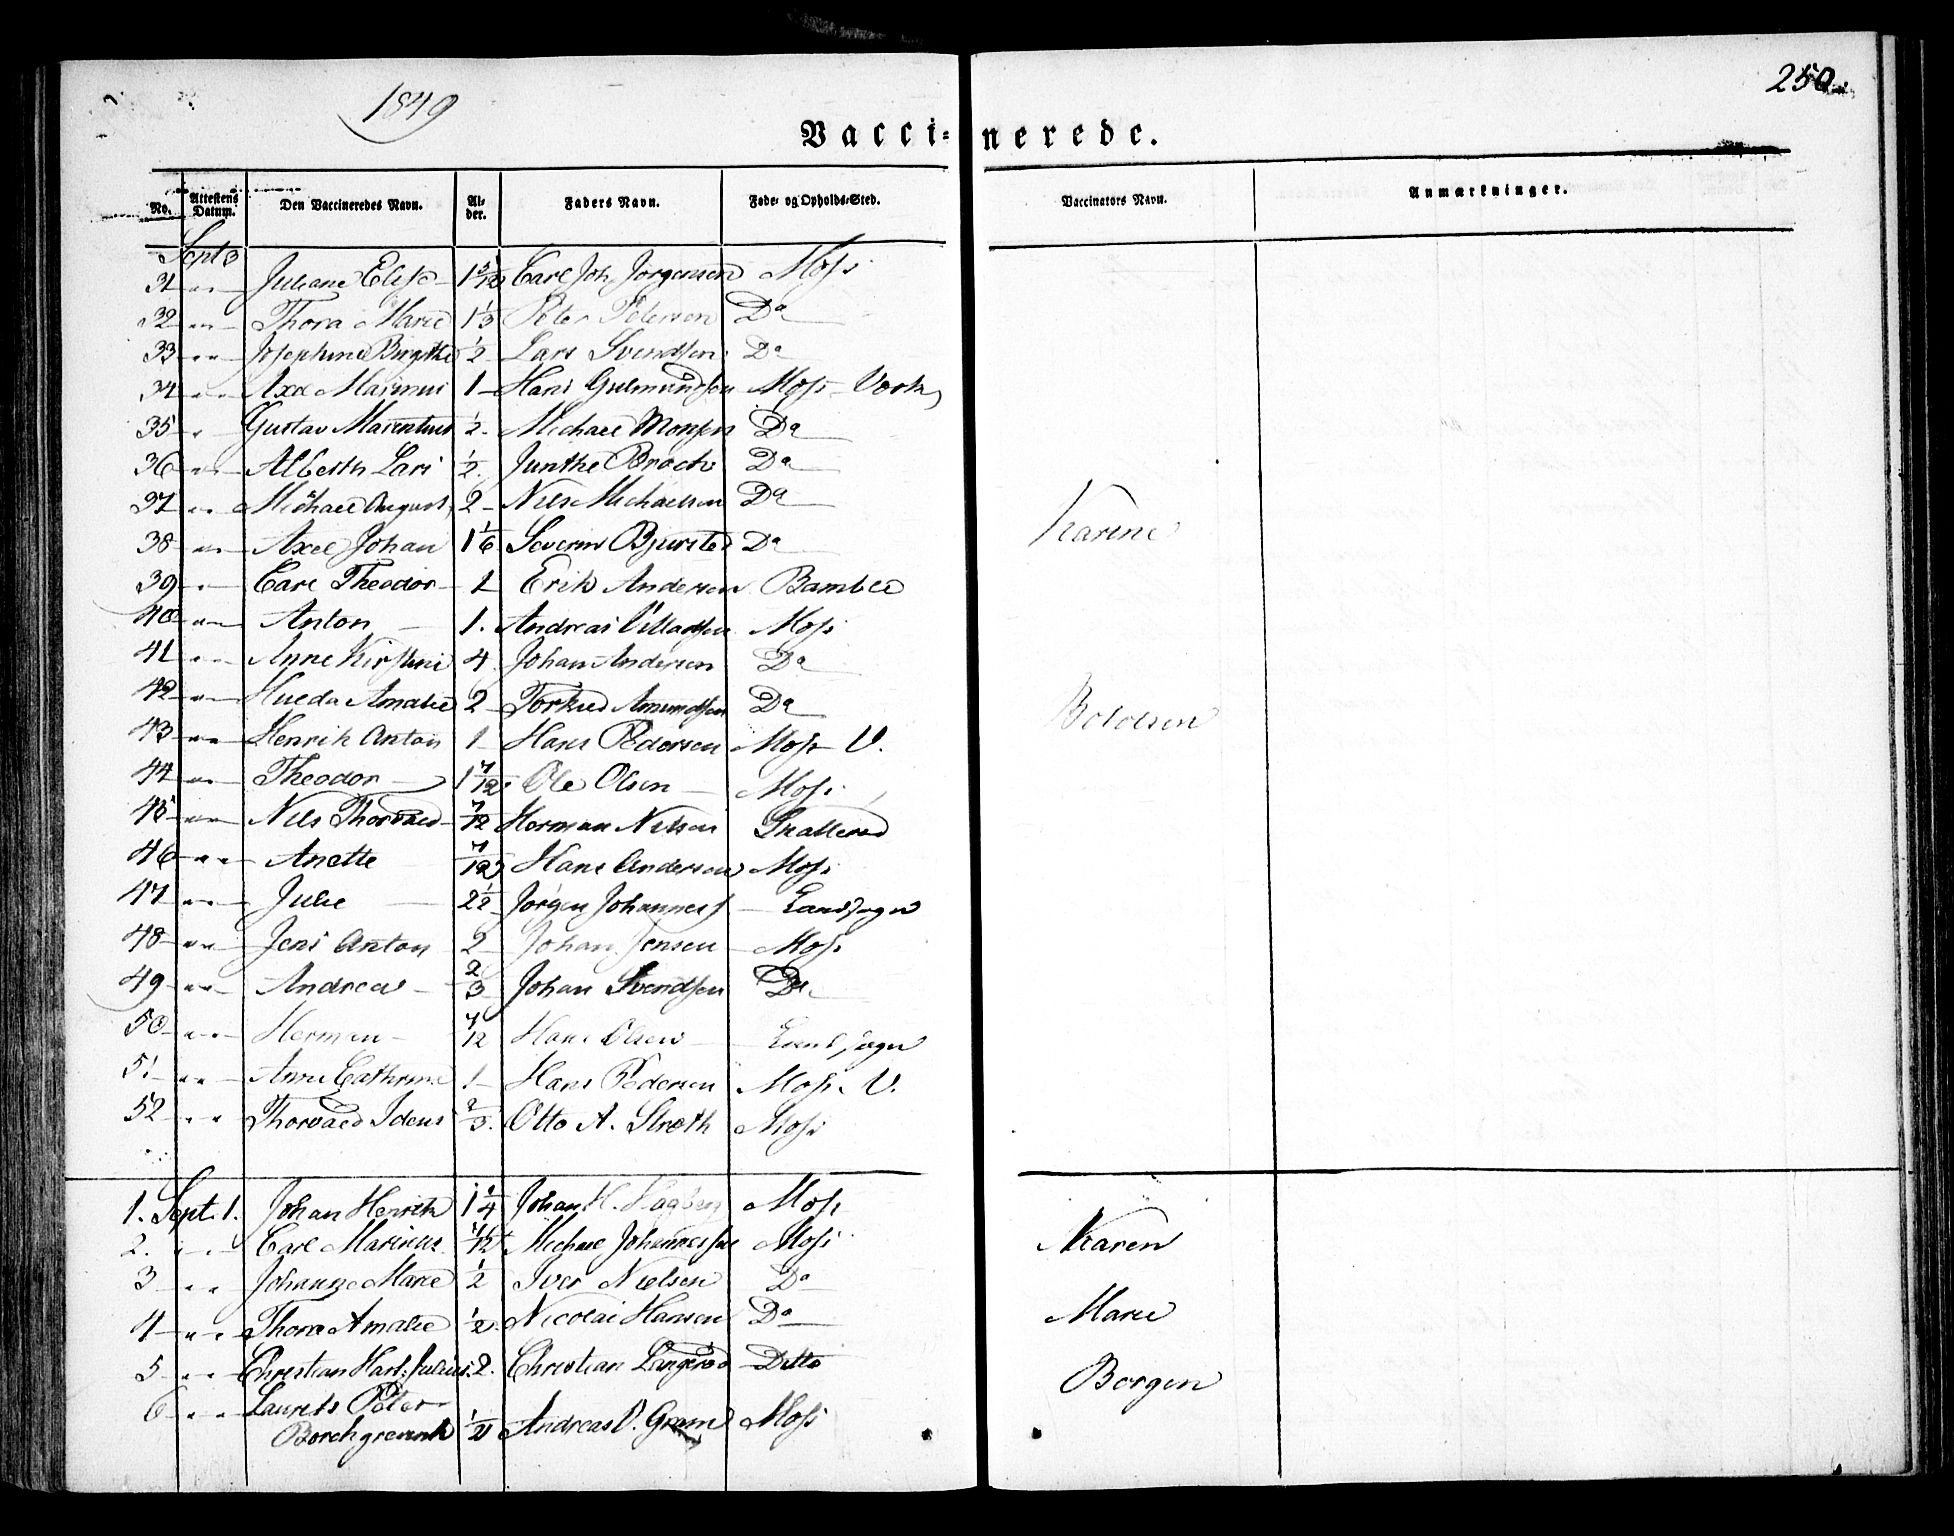 1849
250.
Vacci- nerede.
No. Attestens Datum. Den Vaccineredes Navn. Al- der. Faders Navn. Føde- og Opholds-Sted. Vaccinators Navn. Anmærkninger.
Sept 3
31 " Juliane Elise 1 5/12 Carl Joh. Jørgensen Moss
32 " Thora Marie 1 1/3 Peter Pedersen Do
33 " Josephine Birgithe 1/2 Lars Svendsen Do
34 " Axel Marinus 1 Hans Gulmundsen Moss Værk
35 " Gustav Marentius 1/2 Michael Monsen Do
36 " Alberth Lars 1/2 Junthe Broch Do
37 " Michael August 2 Niels Michaelsen Do
38 " Axel Johan 1 1/6 Severin Bjursted Do Karine
39 " Carl Theodor 1 Erik Andersen Bamble
40 " Anton 1. Andreas Villadsen Moss
41 " Anne Kirstine 4 Johan Andersen Do
42 " Hulda Amalie 2 Torkild Amundsen Do Boldesen
43 " Henrik Anton 1 Hans Pedersen Moss V.
44 " Theodor 1 7/12 Ole Olsen Moss
45 " Nils Thorvald 7/12 Herman Nilsen
46 " Anette 7/12 Hans Andersen Moss
47 " Julie 2 1/2 Jørgen Johanness Landsogn
48 " Jens Anton 2 Johan Jensen Moss
49 " Andreas 2/3 Johan Svendsen Do
50 " Herman 7/12 Hans Olsen Landsogn
51 " Anne Cathrine 1 Hans Pedersen Moss V.
52 " Thorvald Idens 2/3. Otto A. Stroth Moss
1. Sept. 1. Johan Henrik 1 1/4 Johan H. Hagberg Moss
2. " Carl Marinus /12 Michael Johannessen Moss Karen
3 " Johanne Marie 1/2 Iver Nielsen Do
4 " Thora Amalie 1/2 Nicolai Hansen Do Marie
5 " Christian Hartv. Julius 2. Christian Langerød Ditto Borgen
6 " Laurits Peter
Borchgrevink 1/2 Andreas V. Gram Moss